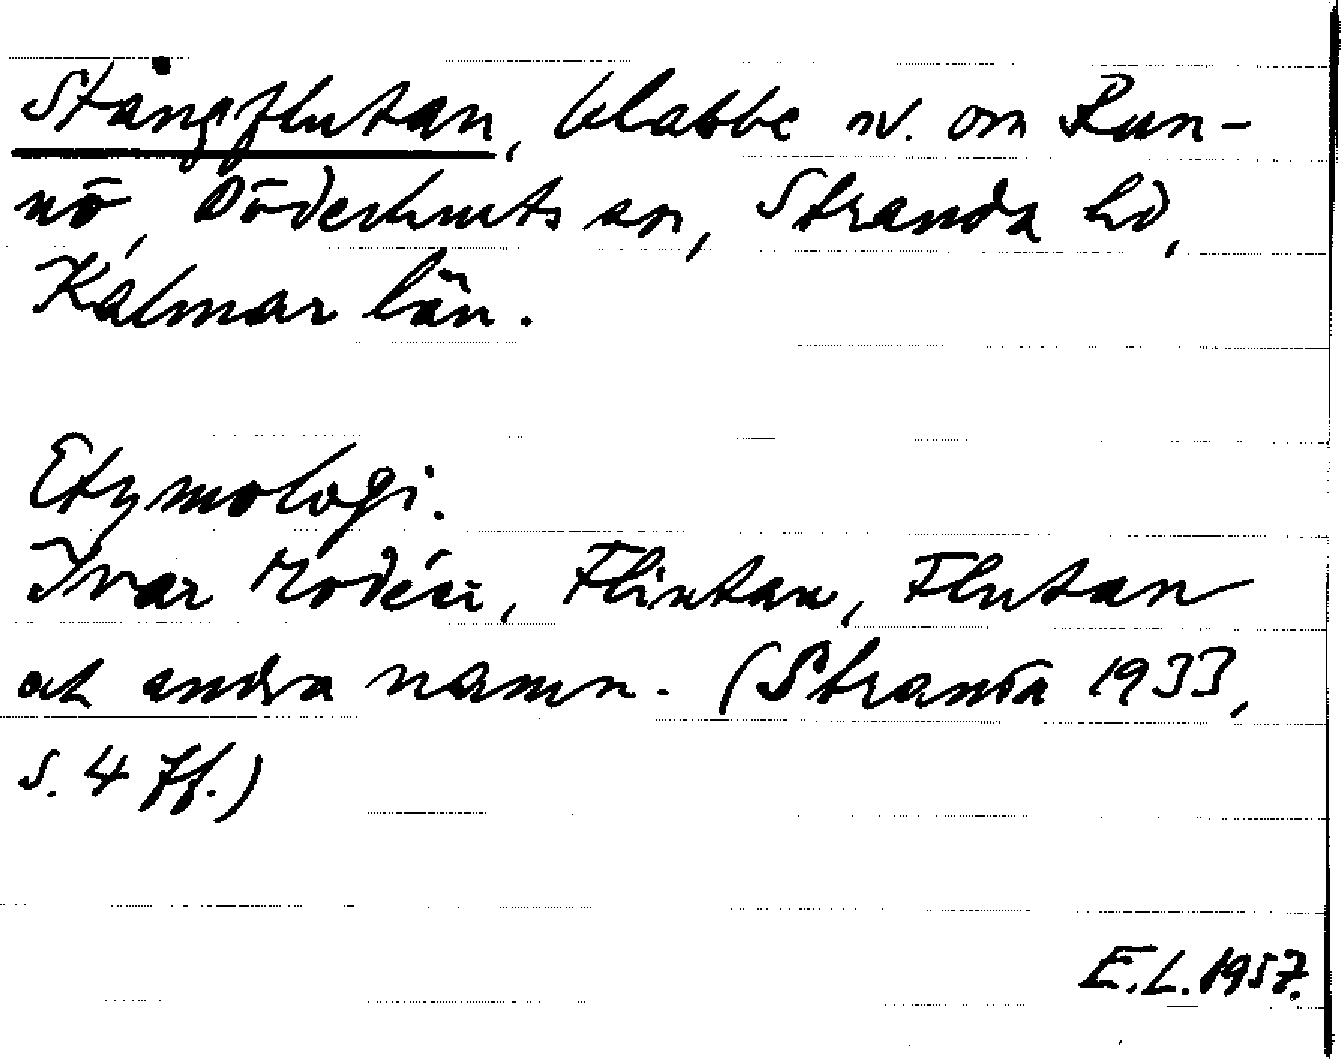 Stångflutan, klabbe nv. om Run-
nö, Döderhults sn, Stranda hd,
Kalmar län.
Etymologi.
Ivar Modéer, Flintan, Flutan
och andra namn. (Stranda 1933,
s. 4 ff.)
E.L. 1957.